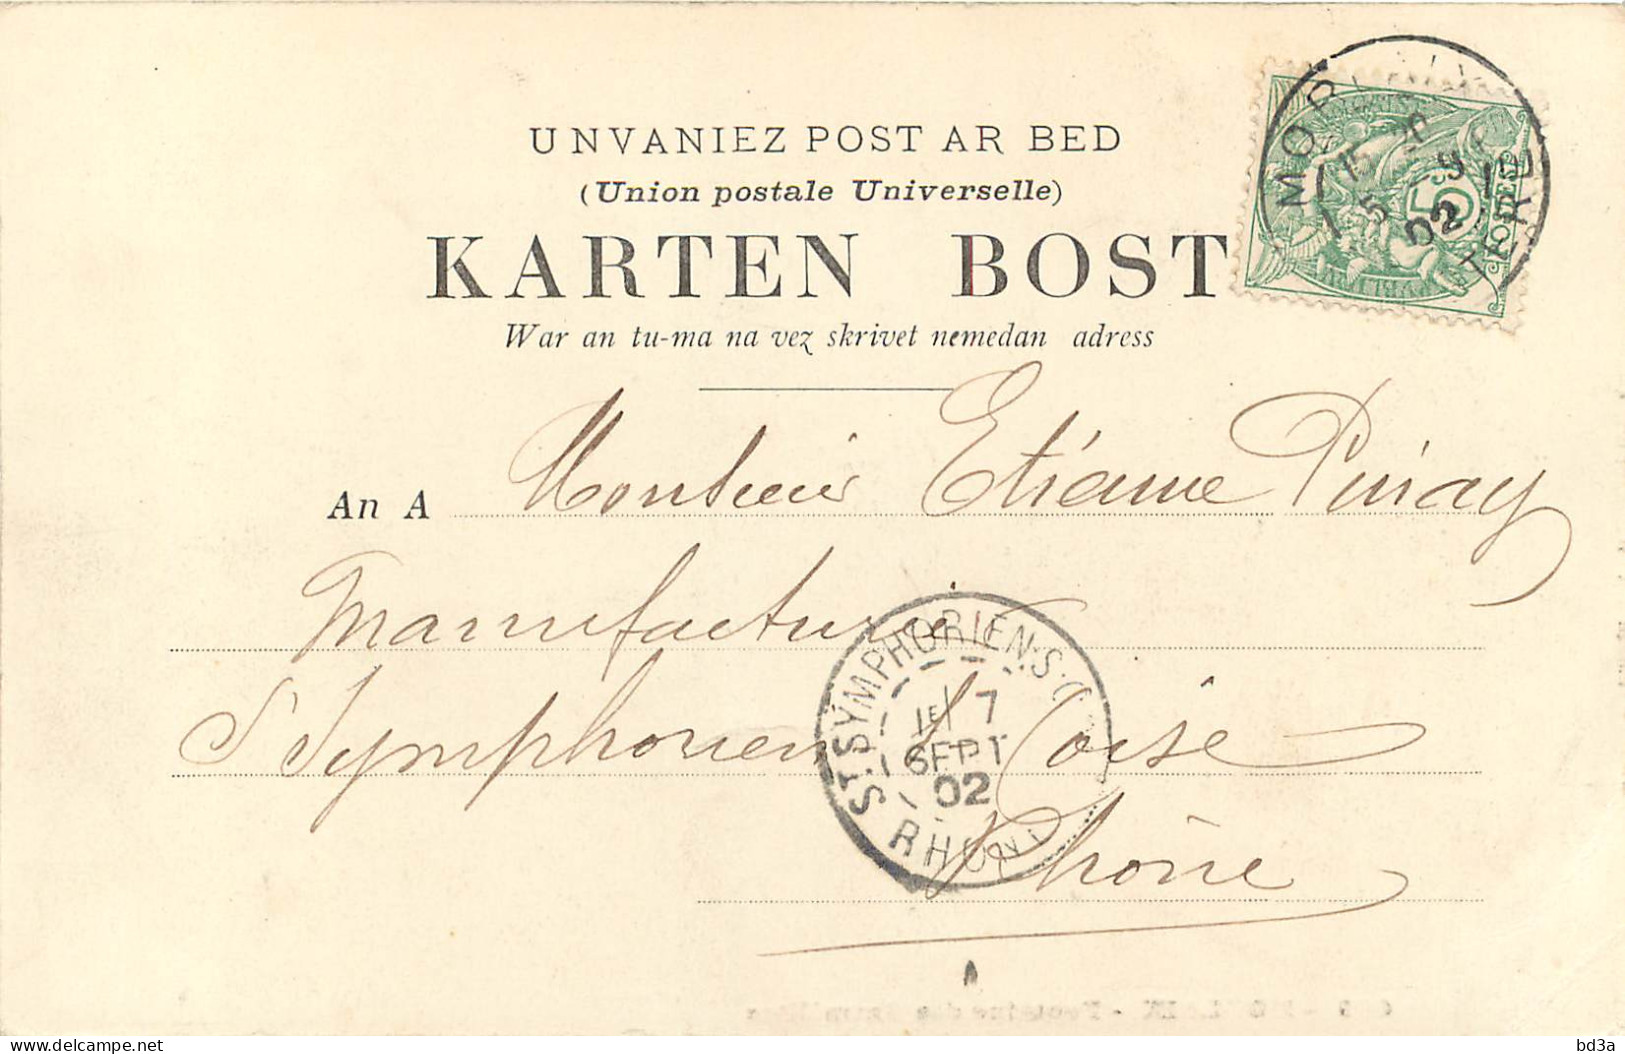 UNVANIEZ POST AR BED
(Union postale Universelle)
KARTEN BOST
War an tu-ma na vez skrivet nemedan adress
5
POSTES
15
5 - 9
02
An A Monsieur Etienne Pinay
Manufacture
St Symphorien s/ Coise
Rhône
ST. SYMPHORIEN-S-C
1E/ 7
SEPT
02
RHONE
bd3a